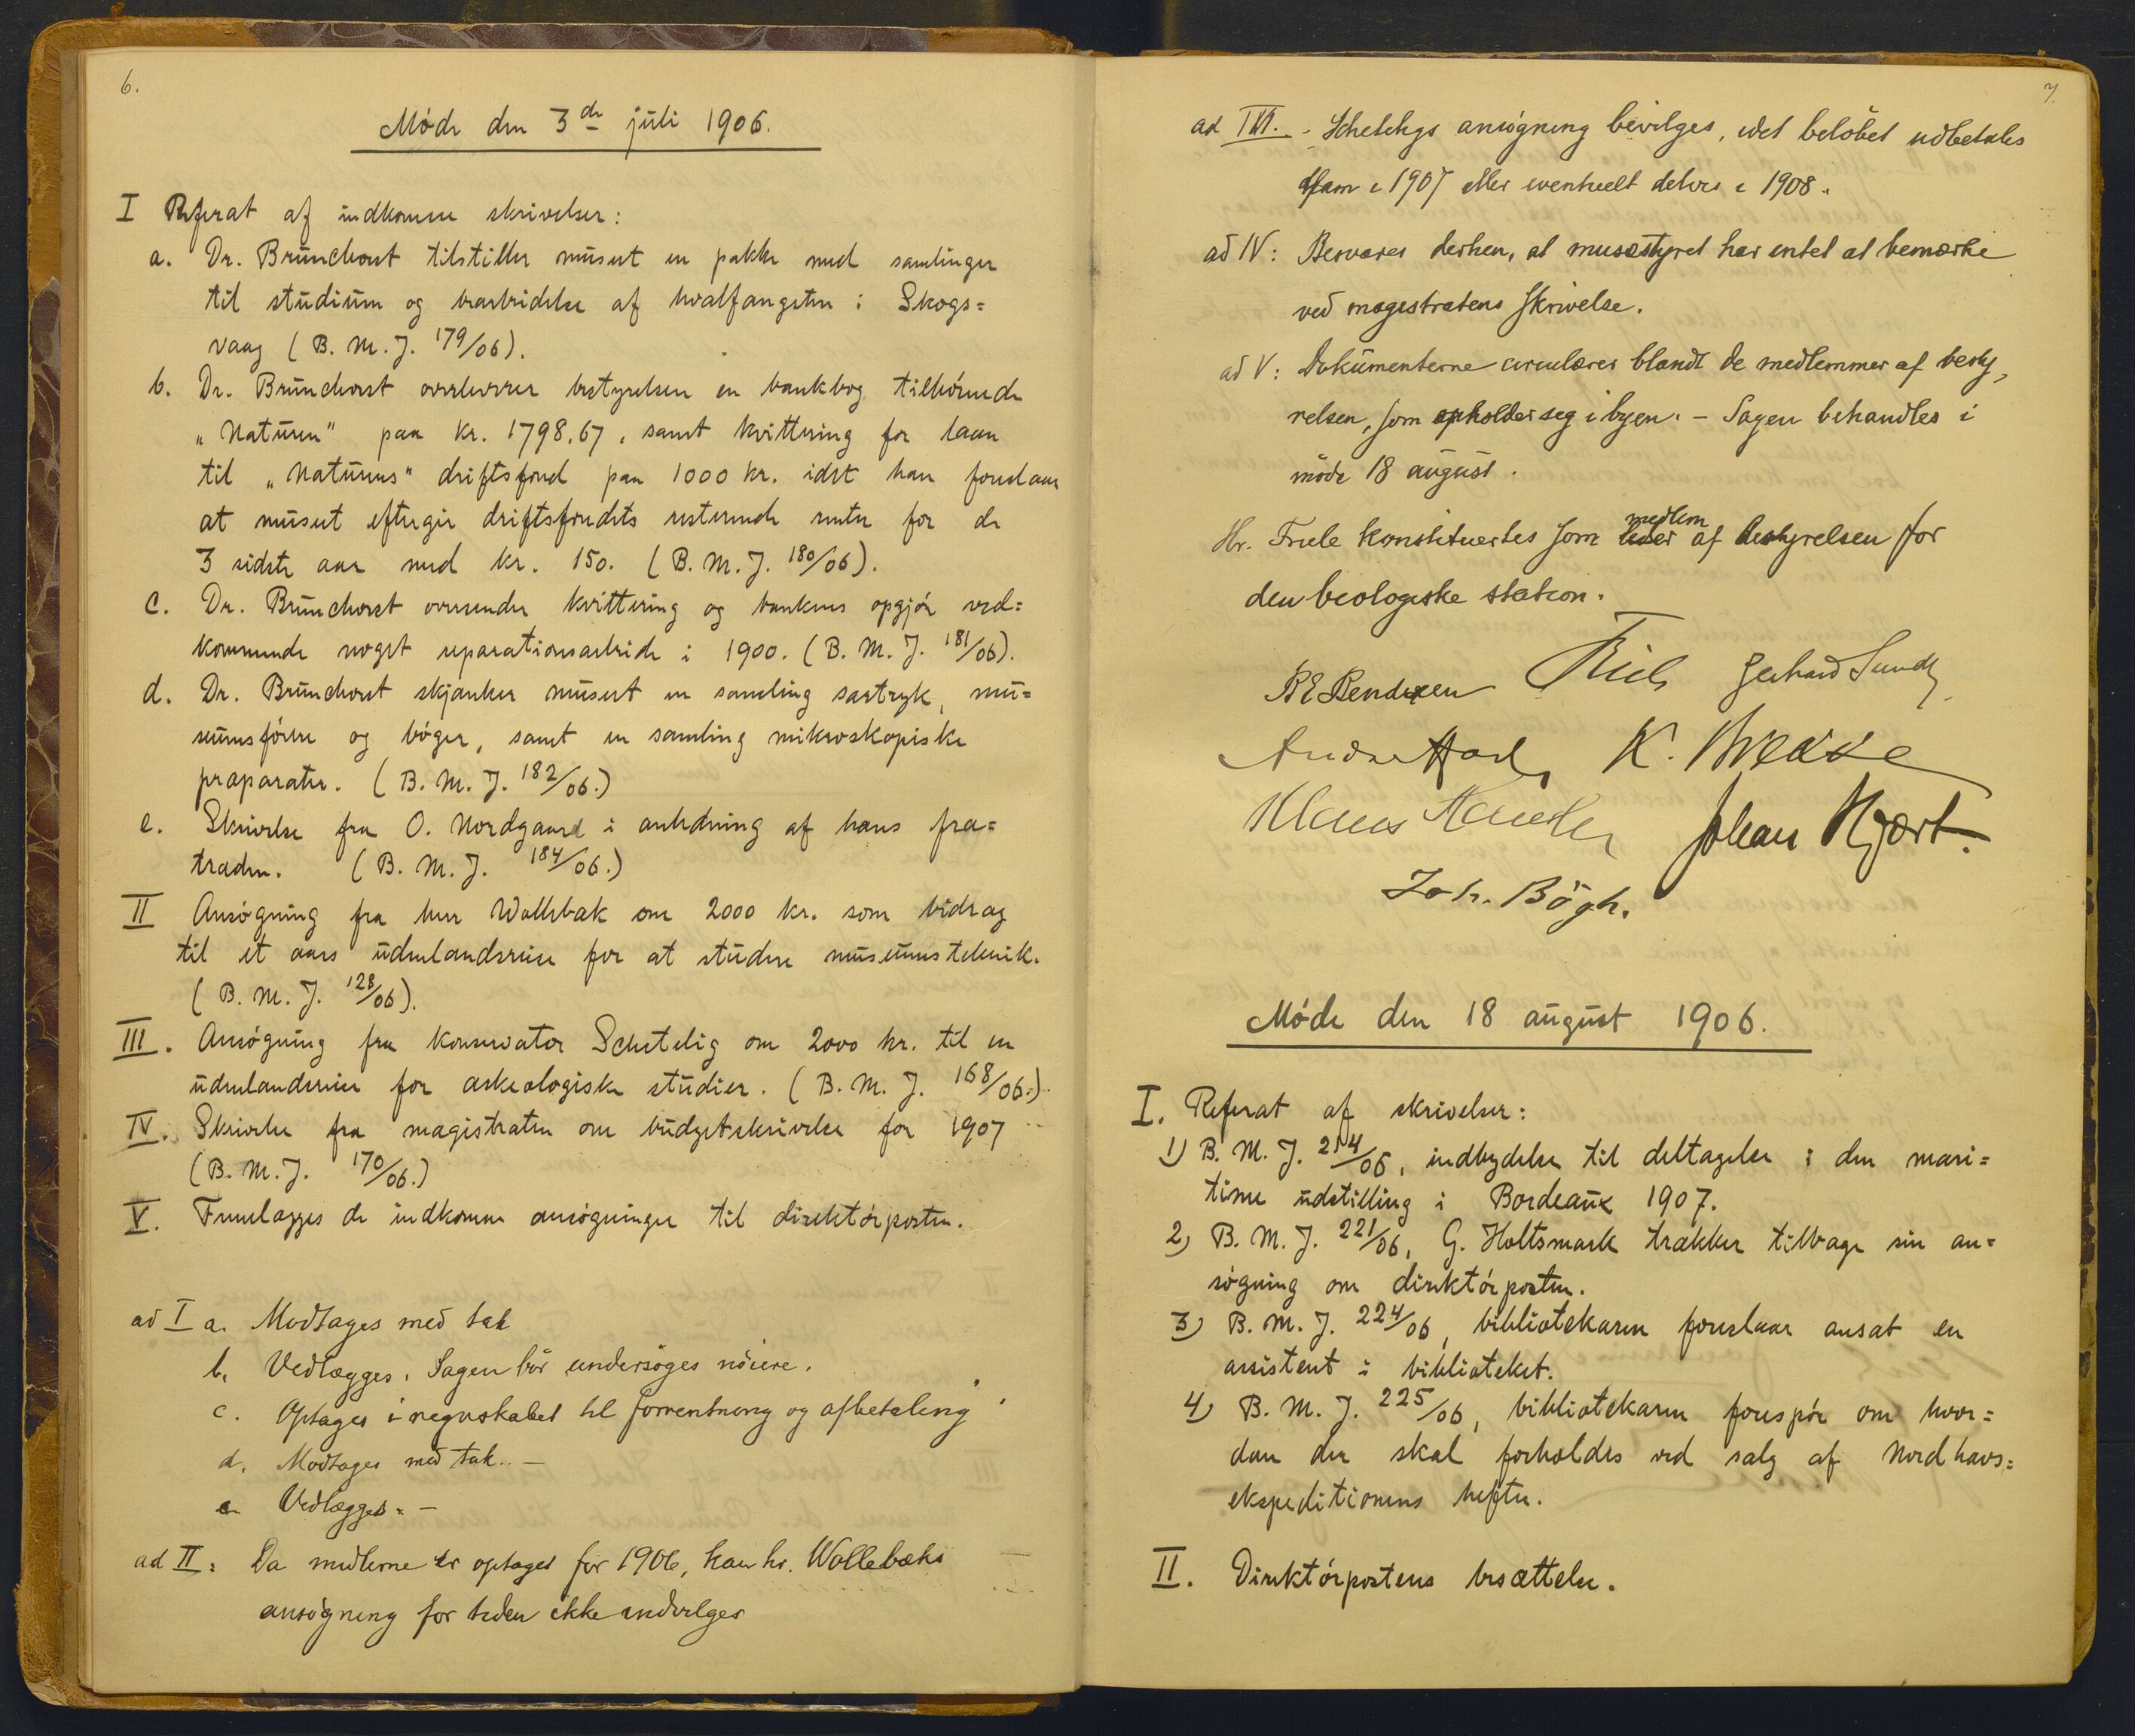 6.
Møde den 3de juli 1906.
I Referat af indkomne skrivelser:
a. Dr. Brunchorst tilstiller museet en pakke med samlinger
til studium og bearbeidelse af hvalfangsten i Skogs=
vaag (B. M. J. 179/06).
b. Dr. Brunchorst overleverer bestyrelsen en bankbog tilhørende
"Naturen" paa kr. 1798.67, samt kvittering for laan
til "Naturens" driftsfond paa 1000 kr. idet han foreslaar
at museet eftergir driftsfondets resterende renter for de
3 sidste aar med kr. 150. (B. M. J. 180/06).
c. Dr. Brunchorst oversender kvittering og bankens opgjør ved=
kommende noget reparationsarbeide i 1900. (B. M. J. 181/06).
d. Dr. Brunchorst skjænker museet en samling særtryk, mu=
seumsførere og bøger, samt en samling mikroskopiske
præparater. (B. M. J. 182/06.)
e. Skrivelse fra O. Nordgaard i anledning af hans fra=
træden. (B. M. J. 184/06.)
II Ansøgning fra herr Wollebæk om 2000 kr. som bidrag
til et aars udenlandsreise for at studere museumsteknik.
(B. M. J. 128/06).
III. Ansøgning fra konservator Schetelig om 2000 kr. til en
udenlandsreise for arkeologiske studier. (B. M. J. 168/06.)
IV. Skrivelse fra magistraten om budgetskrivelse for 1907
(B. M. J. 170/06.)
V. Fremlægges de indkomne ansøgninger til direktørposten.
ad I a. Modtages med tak
b. Vedlægges. Sagen bør undersøges nöiere.
c. Optages i regnskabet til forrentning og afbetaling
d. Modtages med tak. —
e Vedlægges. —
ad II: Da midlerne er optaget for 1906, kan hr. Wollebæks
ansøgning for tiden ikke indvilges
7.
ad III. Scheteligs ansøgning bevilges, idet belöbet udbetales
ham i 1907 eller eventuelt delvis i 1908.
ad IV: Besvares derhen, at museistyret har intet at bemærke
ved magistratens skrivelse.
ad V: Dokumenterne circulærer blandt de medlemmer af besty,
relsen, som opholder seg i byen. – Sagen behandles i
möde 18 august.
medlem
Hr. Friele konstitueres som leder af bestyrelsen for
den biologiske station.
B E Bendixen Friele Gerhard Sundt
K. Brekke
Klaus Hanssen Johan Hjort.
Joh. Bögh.
Møde den 18 august 1906.
I. Referat af skrivelser:
1) B. M. J. 214/06, indbydelse til deltagelse i den mari=
time udstilling i Bordeaux 1907.
2) B. M. J. 221/06, G. Holtsmark trækker tilbage sin an=
søgning om direktørposten.
3) B. M. J. 224/06, bibliotekaren foreslaar ansat en
assistent i biblioteket.
4) B. M. J. 225/06, bibliotekaren forespør om hvor=
dan der skal forholdes ved salg af Nordhavs=
ekspeditionens hefter.
II. Direktørpostens besættelse.